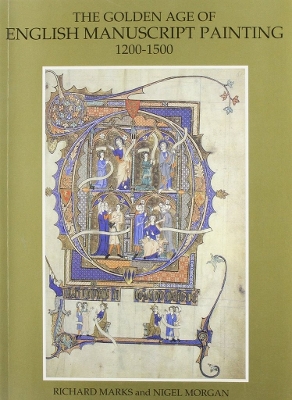 THE GOLDEN AGE OF
ENGLISH MANUSCRIPT PAINTING
1200-1500
RICHARD MARKS and NIGEL MORGAN